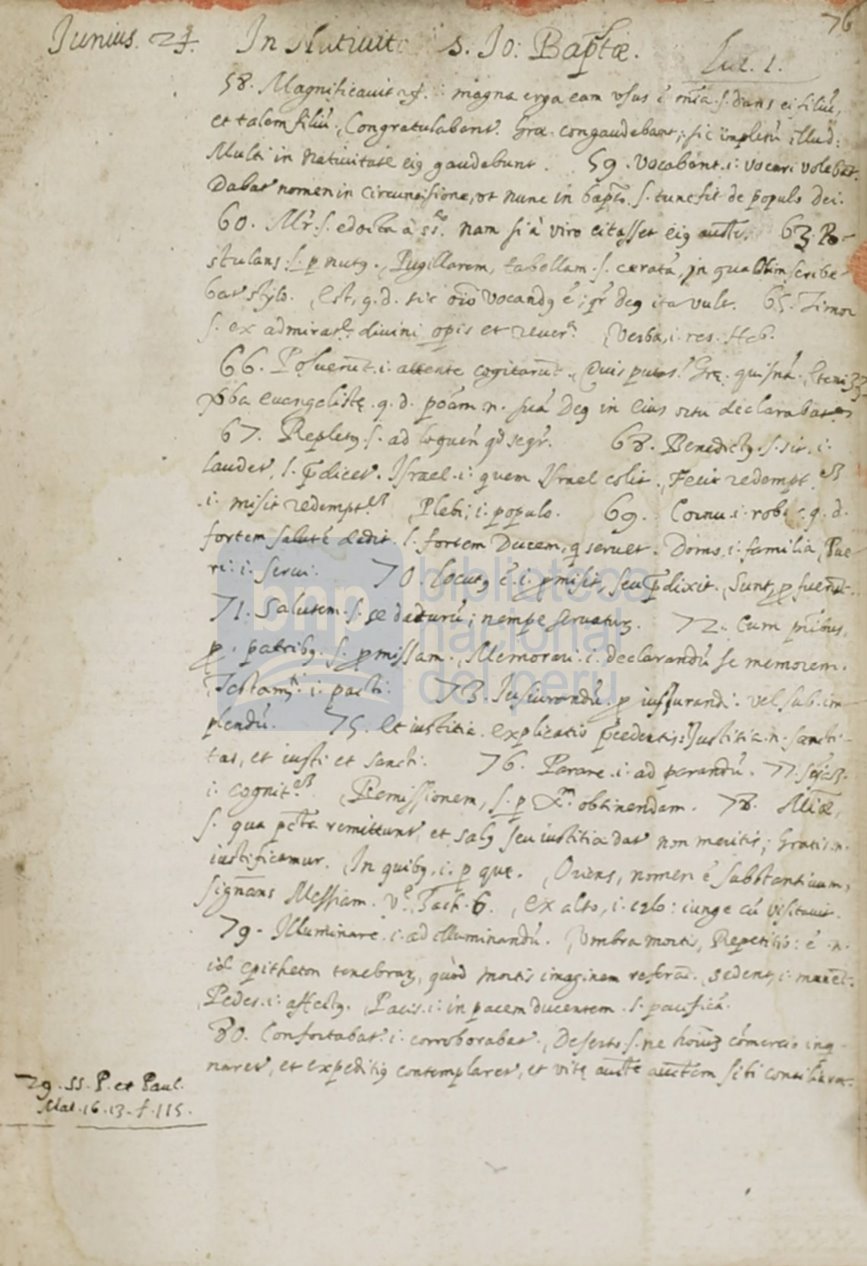 76
Junius. 24. In Nativit s. Jo: Baptæ. Luc. 1.
58. Magnificavit : magna erga eam usus ē s. dans ei filiū,
et talem filiū. Congratulabant. Grę. congaudebant; sic impletū illud:
Multi in nativitate eiꝰ gaudebunt. 59. Vocabant. i. vocari volebāt.
Dabat nomen in circuncisione, ut nunc in bapt̄o. s. tunc fit de populo dei.
60. Mr̄. s. edocta à sp̄. nam si à viro eiꝰ 63. Po-
stulans. s. p nutꝰ. Pugillarem, tabellam. s. ceratā, in qua olim scribe-
bat stylo. Est, q. d. sic oīo vocandꝰ ē; qr̄ deꝰ ita vult. 65. Timor
s. ex admirat.ᵉ divini opis et rever.ᵃ Verba, i. res. Heb.
66. Posuerūt. i. attente cogitarūt. Quis putas? Grę. quisnā.
vba evangelistę. q. d. n. suā Deꝰ in eius ortu declarabat
67. Repletꝰ. s. ad loquen qd seqr̄. 68. Benedictꝰ. s. sit, i.
laudet, l. p̄dicet. Israel. i. quem Israel colit. Fecit redempt.ᵉᵐ
i. misit redempt.ᵉᵐ Plebi, i. populo. 69. Cornu. i. rob q. d.
fortem salutē dedit. l. fortem Ducem, q servet. Domo, i. familia, Pue
ri: i: servi. 70. Locutꝰ ē. i. pmisit, seu p̄dixit. Sunt, p fuerūt.
71. Salutem. s. se daturū; nempe servaturꝰ. 72. Cum pr̄ibus,
p. patribꝰ. s. pmissam. Memorari. i. declarandū se memorem.
Testam.ᵗⁱ i. pacti. 73. Jusiurandū. p iurisiurandi. vel sub. im
plendū. 75. et iustitia. explicatio p̄cedentis. Justitia. n. sancti-
tas, et iusti et sancti. 76. Parare. i. ad parandū. 77.
i. cognit.ᵉᵐ Remissionem, s. p Xm̄ obtinendam. 78.
s. qua pctā remittunt et salꝰ seu iustitia dat non meritis; gratis. n.
iustificamur. In quibꝰ. i. p que. Oriens, nomen ē substantivum,
signāns Messiam. vᵉ Zach. 6. ex alto, i. cęlo: iunge cū visitavit.
79. Illuminare. i. ad illuminandū. Umbra mortis, Repetitio: ē. n.
epitheton tenebraꝝ, quòd mortis imaginem referād. sedent, i. manēt.
Pedes. i. affectꝰ. Pacis. i. in pacem ducentem. s. pacificā.
80. Confortabat. i. corroborabat. Deserto. s. ne homīū cōmercio inq
naret, et expeditiꝰ contemplaret, et vitę sibi
29. SS. P. et Paul.
Mat. 16. 13. f. 115.
bnp biblioteca
nacional
del perú